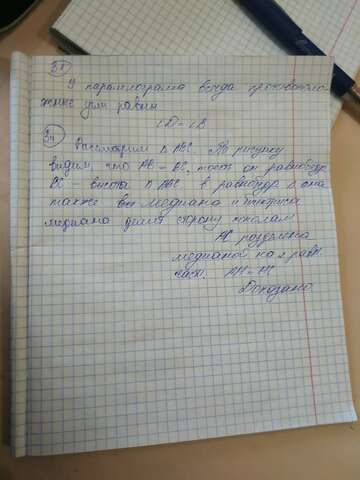 31
У параллелограма всегда противополо-
жные углы равны
∠D = ∠B
3ч
Рассмотрим △ ABC По рисунку
видим, что AB = BC, тость он равнобедр
- высота △ ABC в равнобедр △ она
также и медиана и биссектриса
медиана делит сторону пополам
AC разделена
медианой на 2 равн.
част. AH = HC
Доказано